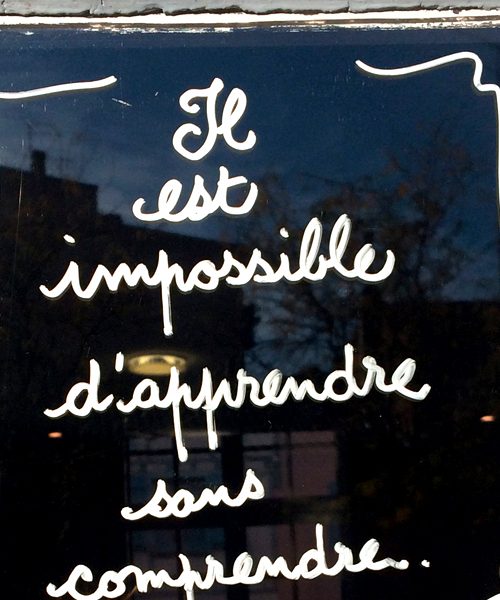 Il
est
impossible
d'apprendre
sans
comprendre.